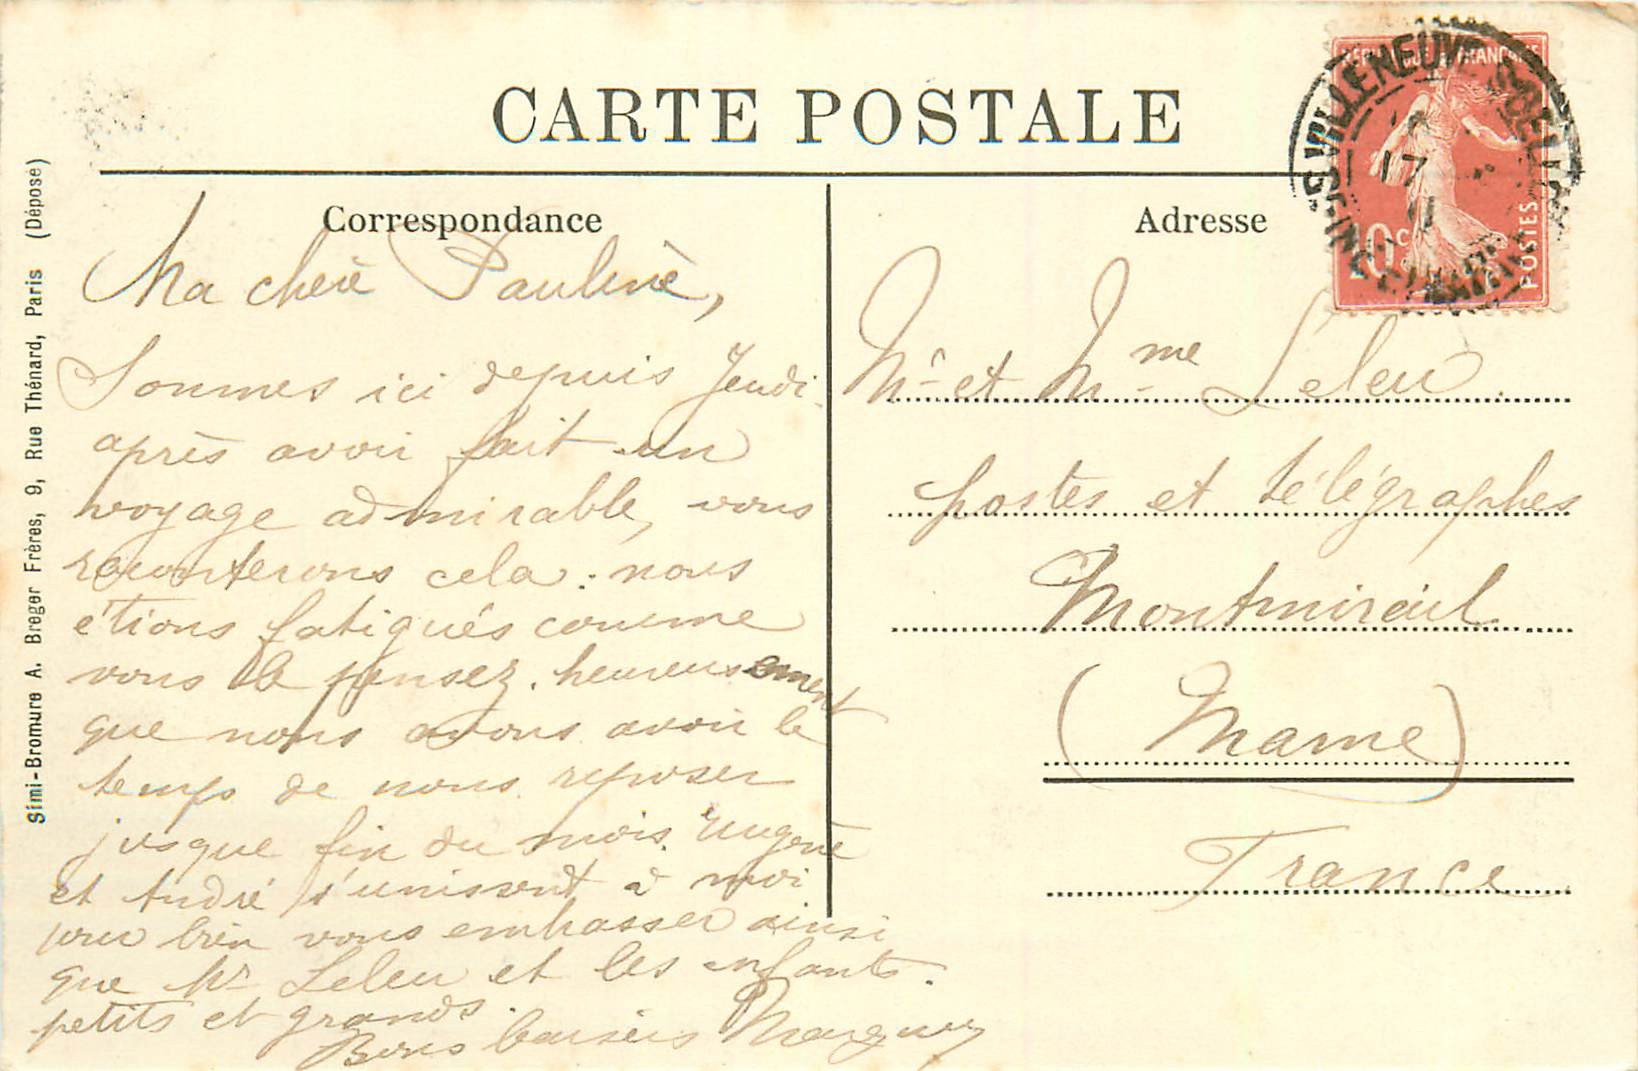 CARTE POSTALE
Correspondance
Ma chère Pauline,
Sommes ici depuis Jeudi
après avoir fait un
voyage admirable, vous
raconterons cela. nous
étions fatigués comme
vous le pensez. heureusement
que nous avons avoir le
temps de nous reposer
jusque fin du mois. Eugène
et André s'unissent à moi
pour bien vous embrasser ainsi
que Mr Leleu et les enfants.
petits et grands.
Bons baisers
Adresse
Mr et Mme Leleu.
postes et télégraphes
Montmirail
(Marne)
France
RÉPUBLIQUE FRANÇAISE
10 c
POSTES
VILLENEUVE
17
11
Simi-Bromure A. Breger Frères, 9, Rue Thénard, Paris (Déposé)